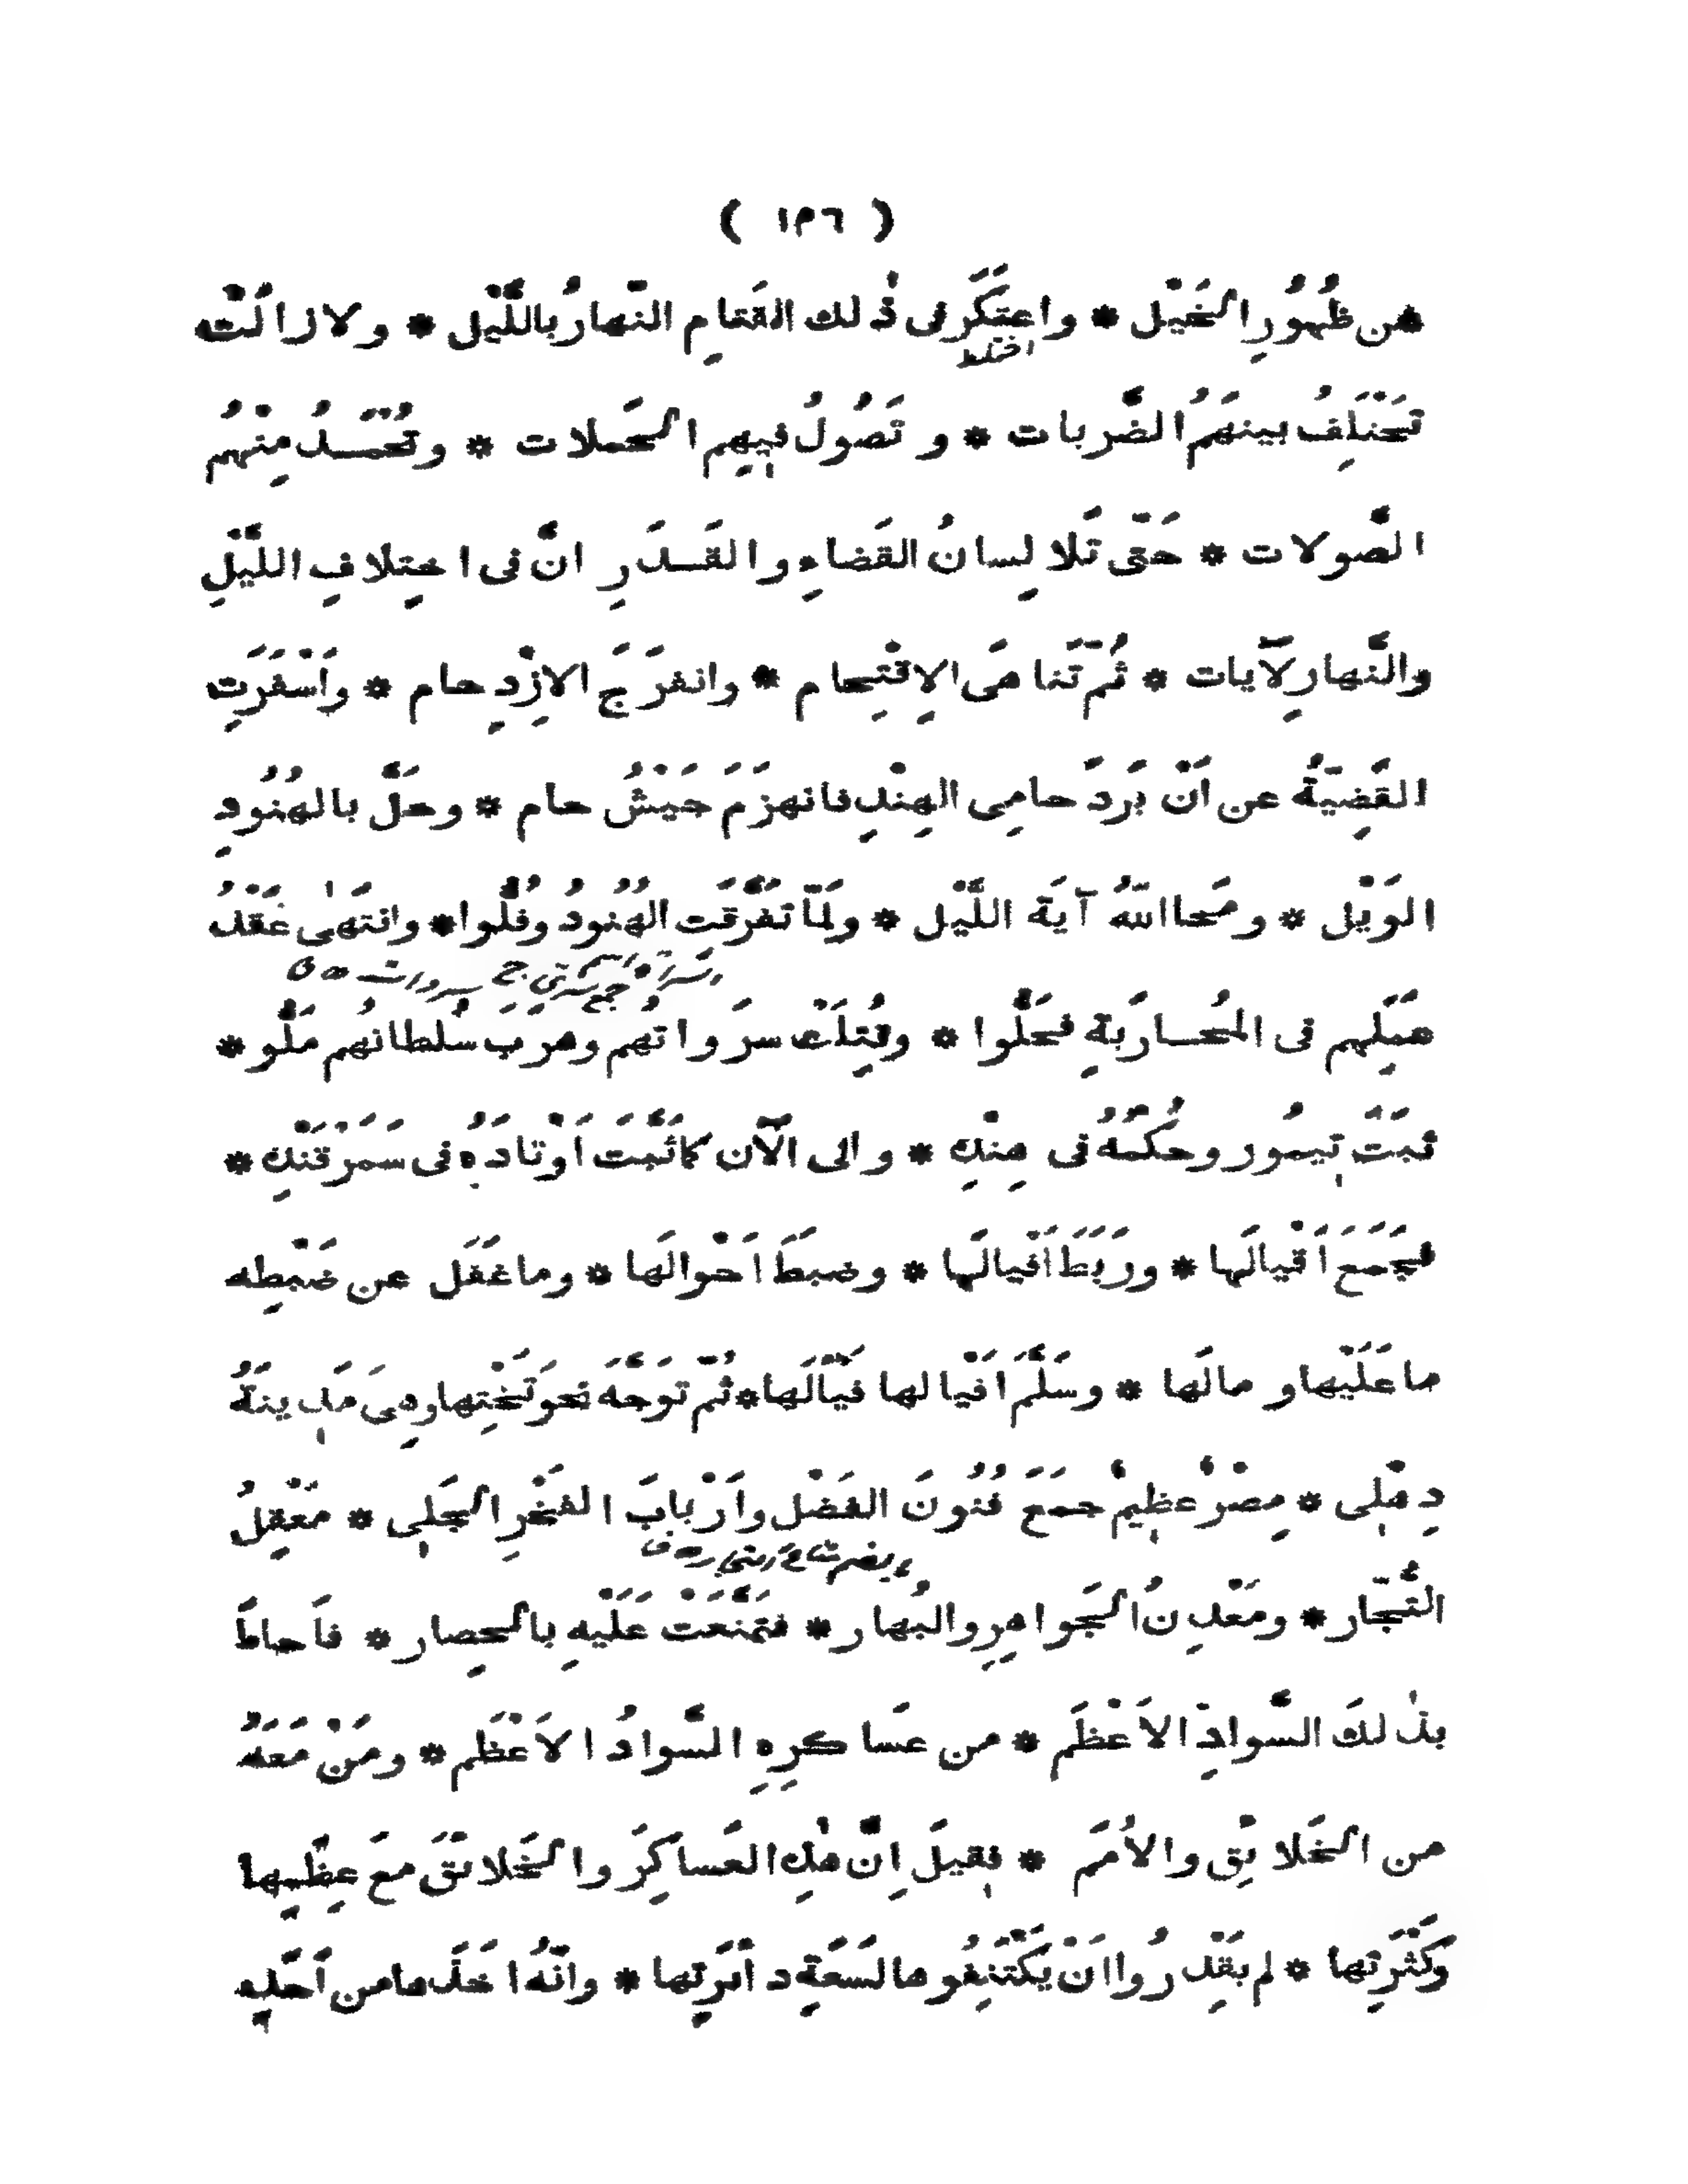 ( ١٣٦ )
من ظُهُورِ الخَيْل * واعتَكَر فى ذٰلك القَتامِ النّهارُ باللَّيْل * ولا زالَتْ
اختلط
تَخْتَلِفُ بينهَمُ الضَّربات * و تَصُولُ فيهِم الحَملات * وتُحْمَدُ مِنْهُم
الصَّولات * حَتّى تَلا لِسانُ القَضاءِ والقَدَرِ انَّ فى اختِلافِ اللَّيْلِ
والنَّهارِ لَآيات * ثُمّ تَناهَى الاِقْتِحام * وانفرَجَ الازْدِحام * واَسْفَرَتِ
القَضِيّةُ عن اَنْ بَرَدَ حامِى الهِنْدِ فانهزَمَ جَيْشُ حام * وحَلَّ بالهُنُودِ
الوَيْل * ومَحا اللّهُ آيَةَ اللَّيْل * ولَمّا تَفَرَّقَتِ الهُنُودُ وفُلُّوا * وانتَهٰى عَقْدُ
هَيَكِلِهم فى المُحارَبَةِ فَحَلُّوا * وقُتِلَتْ سرَواتُهُم وهَرَبَ سُلطانُهُم مَلُّو *
ثَبَتَ تيمُور وحُكمُهُ فى هِنْدِ * والى الآن كما ثَبَتَ اَوْتادُهُ فى سَمَرْقَنْدِ *
فجَمَعَ اَقْيالَها * ورَبَطَ اَفْيالَها * وضبَطَ اَحْوالَها * وما غَفَل عن ضَبْطِه
ما عَلَيْها و مالَها * وسَلَّمَ اَفْيالها فَيّالَها * ثُمّ توَجَّه نَحوَ تَخْتِها وهِىَ مَدِينَةُ
دِهْلِى * مِصْرٌ عظِيمٌ جمَعَ فُنُونَ الفَضْل واَرْبابَ الفَخْرِ الجَلِى * مَعْقِلُ
التُّجّار * ومَعْدِنُ الجَواهِرِ والبُهار * فتَمَنَّعَتْ عَلَيْهِ بالحِصار * فاَحاطَ
بذٰلكَ السَّوادِ الاَعْظَم * من عَساكِرِهِ السَّوادُ الاَعْظَم * ومَنْ مَعَهُ
من الخَلائِق والاُمَم * فقيلَ اِنَّ هٰذِهِ العَساكِرَ والخَلائقَ مَعَ عِظَمِها
وكَثْرَتِها * لم يَقْدِرُوا اَنْ يَكْتَنِفُوها لسَعَةِ دائرَتِها * وانّهُ اخَذَها من اَحَدِ